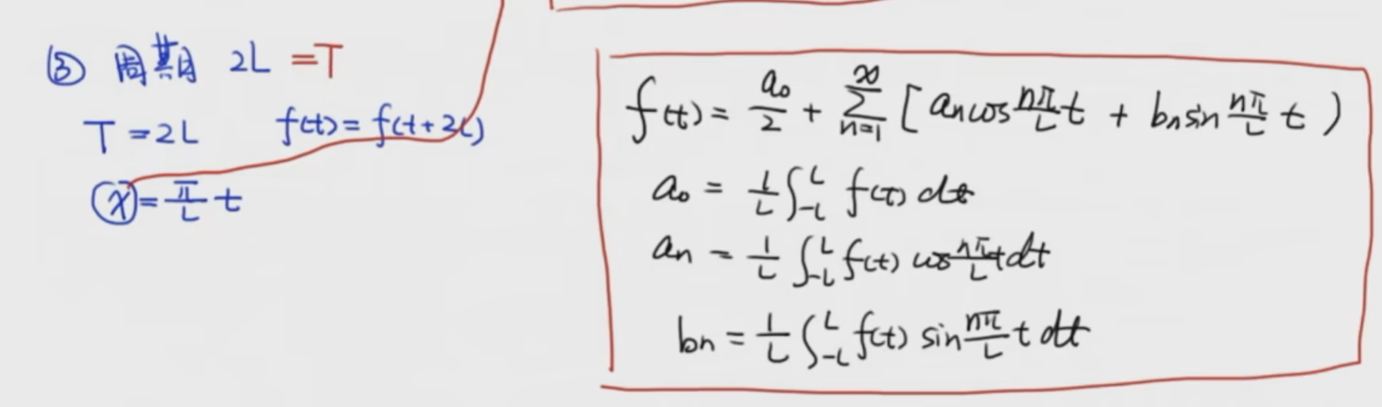 ③ 周期 2L =T
T = 2L f(t) = f(t+2L)
x = π/L t
f(t) = a₀/2 + ∑_{n=1}^{∞} [ aₙcos nπ/L t + bₙsin nπ/L t )
a₀ = 1/L ∫_{-L}^{L} f(t) dt
aₙ = 1/L ∫_{-L}^{L} f(t) cos nπ/L t dt
bₙ = 1/L ∫_{-L}^{L} f(t) sin nπ/L t dt